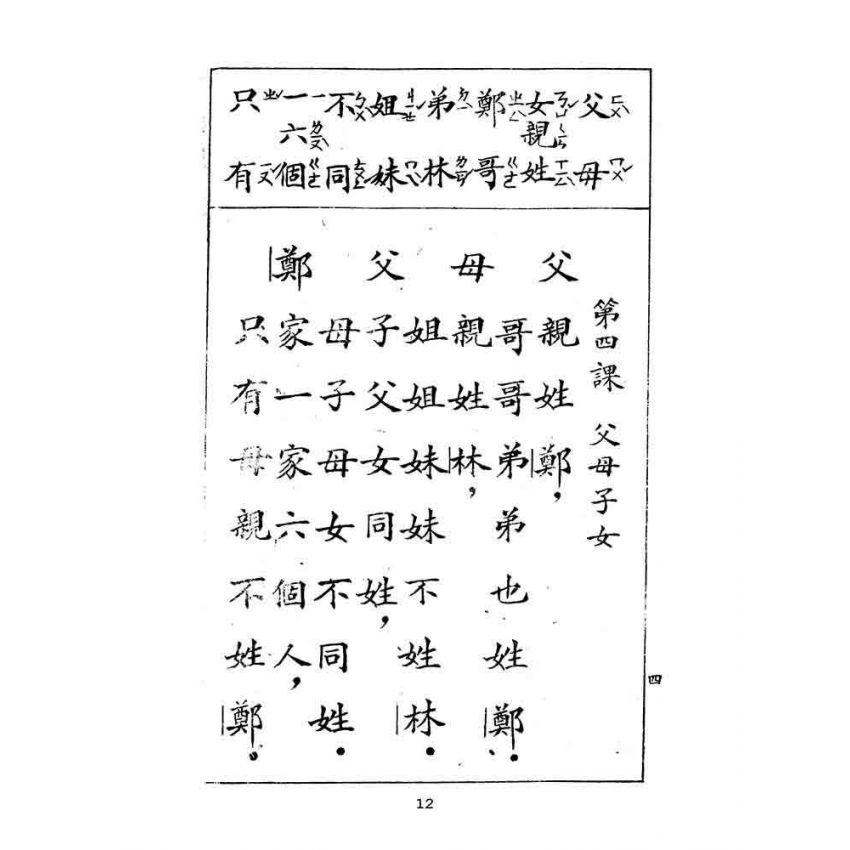 父ㄈㄨˋ母ㄇㄨˇ
女ㄋㄩˇ親ㄑㄧㄣ姓ㄒㄧㄥˋ
鄭ㄓㄥˋ哥ㄍㄜ
弟ㄉㄧˋ林ㄌㄧㄣˊ
姐ㄐㄧㄝˇ妹ㄇㄟˋ
不ㄅㄨˋ同ㄊㄨㄥˊ
一ㄧ六ㄌㄧㄡˋ個ㄍㄜˋ
只ㄓˇ有ㄧㄡˇ
第四課 父母子女
父親姓鄭，
哥哥弟弟也姓鄭．
母親姓林，
姐姐妹妹不姓林．
父子父女同姓，
母子母女不同姓．
鄭家一家六個人，
只有母親不姓鄭。
四
12